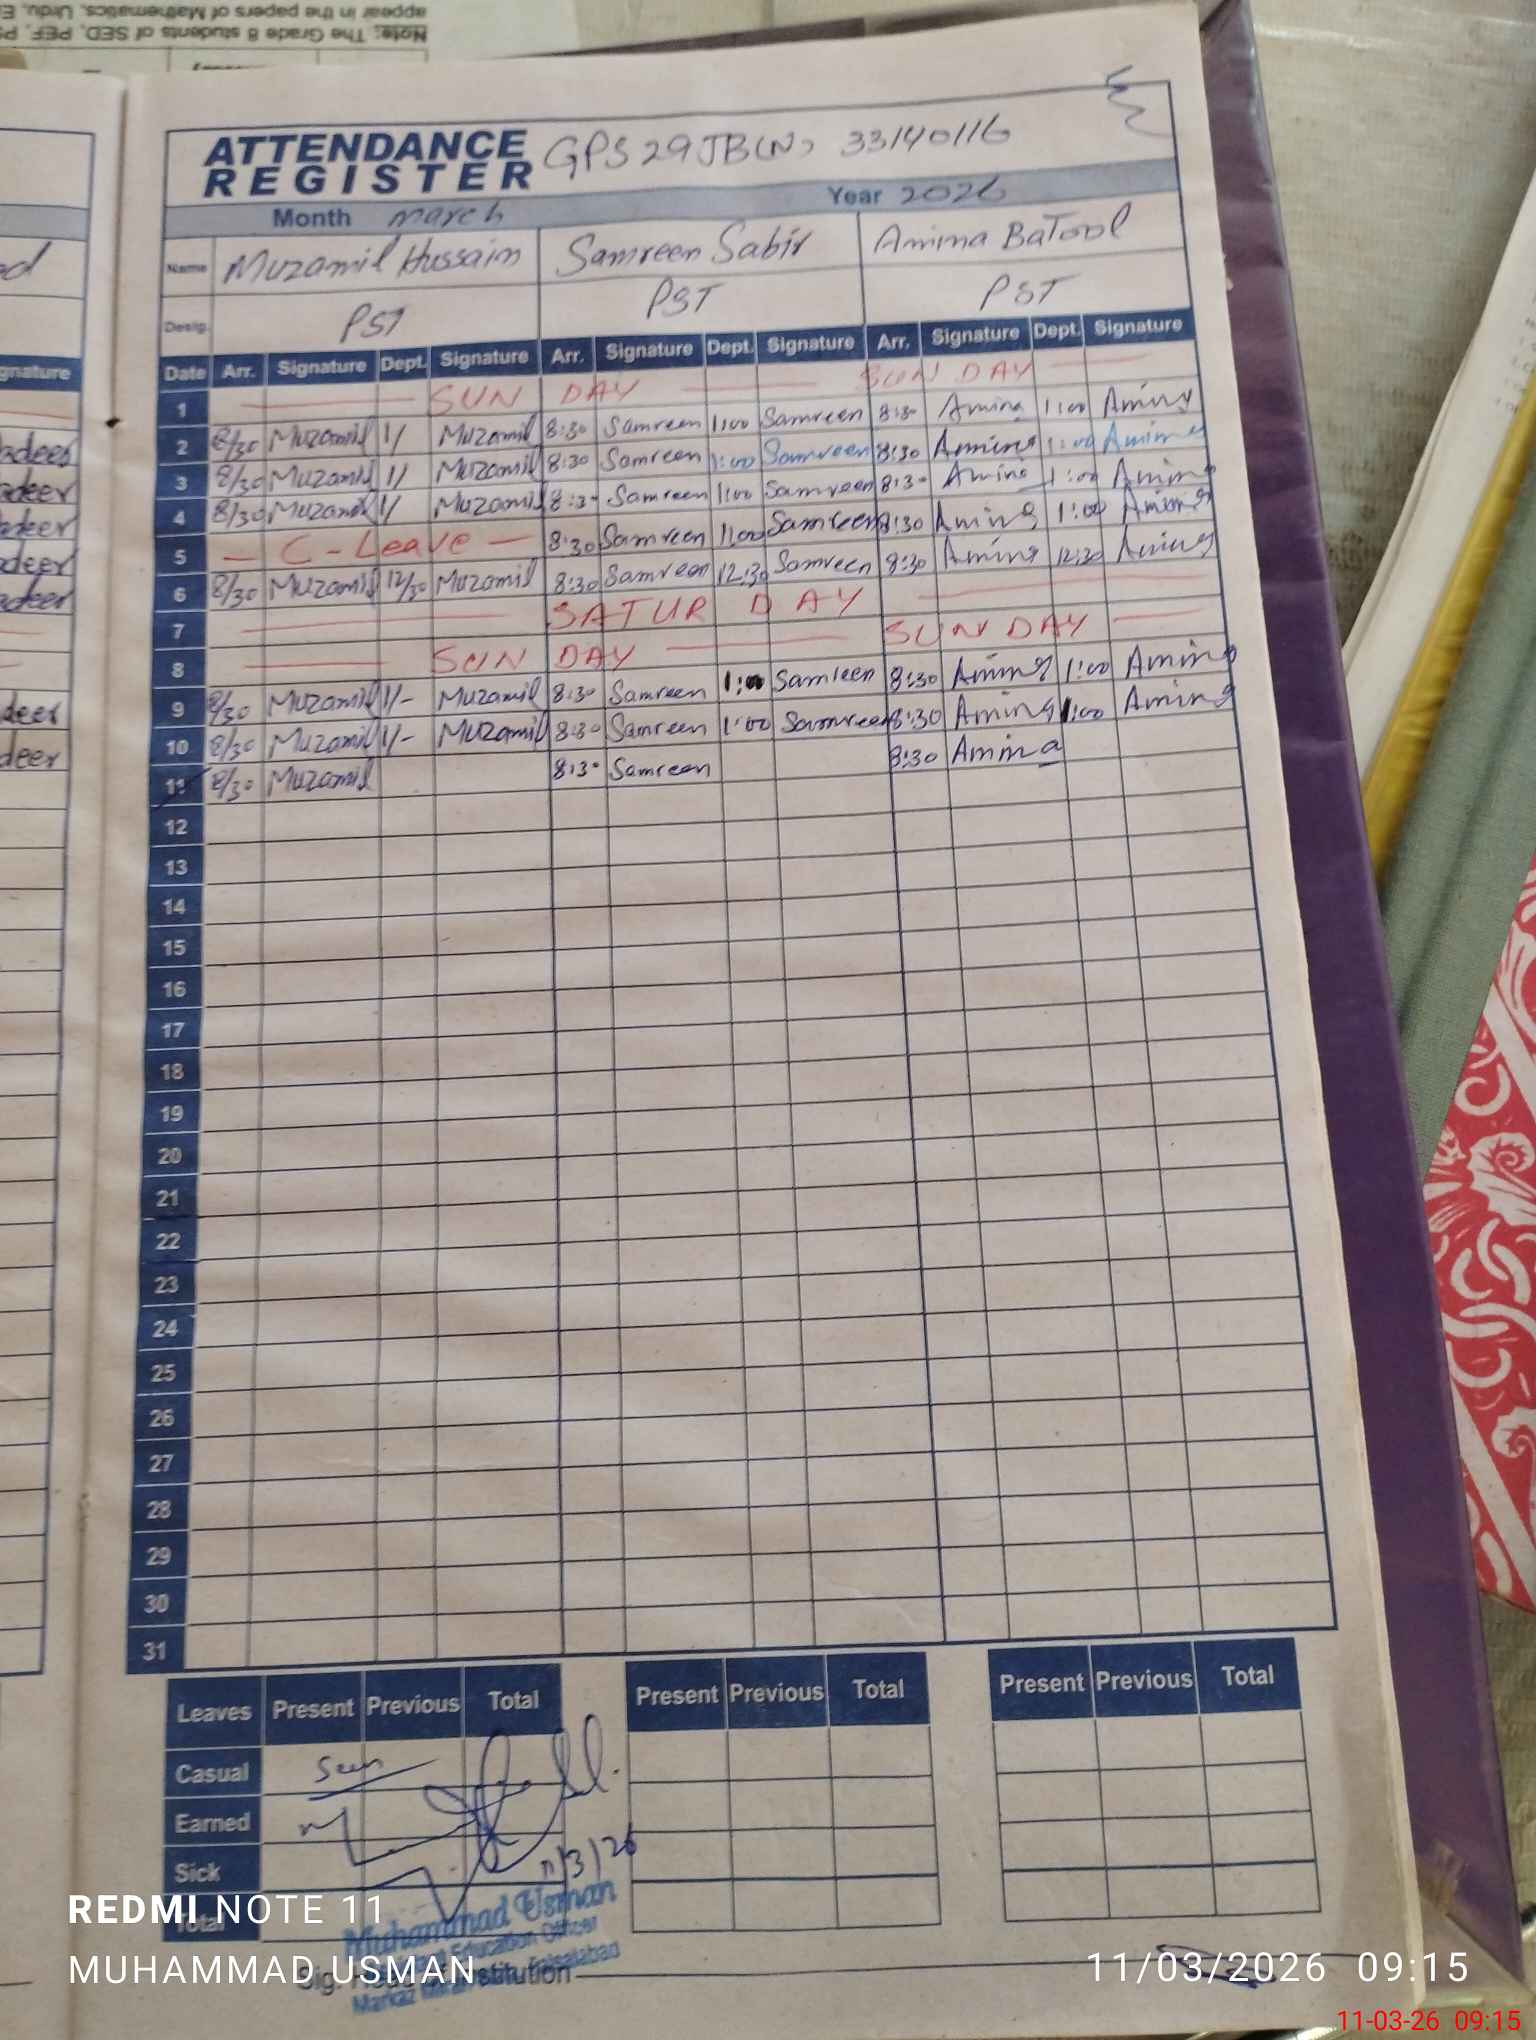 appear in the papers of Mathematics, Urdu, E
Note: The Grade 8 students of SED, PEF, P
ATTENDANCE REGISTER GPS 29JB(N) 33140116
Month march Year 2026
Name Muzamil Hussain Samreen Sabir Amina Batool
Desig. PST PST PST
Date Arr. Signature Dept. Signature Arr. Signature Dept. Signature Arr. Signature Dept. Signature
gnature
1 SUN DAY SUN DAY
2 8/30 Muzamil 1/ Muzamil 8:30 Samreen 1:00 Samreen 8:30 Amina 1:00 Amina
3 8/30 Muzamil 1/ Muzamil 8:30 Samreen 1:00 Samreen 8:30 Amina 1:00 Amina
4 8/30 Muzamil 1/ Muzamil 8:30 Samreen 1:00 Samreen 8:30 Amina 1:00 Amina
5 C-Leave 8:30 Samreen 1:00 Samreen 8:30 Amina 1:00 Amina
6 8/30 Muzamil 12/30 Muzamil 8:30 Samreen 12:30 Samreen 8:30 Amina 12:30 Amina
7 SATUR DAY
8 SUN DAY SUN DAY
9 8/30 Muzamil 1/- Muzamil 8:30 Samreen 1:00 Samreen 8:30 Amina 1:00 Amina
10 8/30 Muzamil 1/- Muzamil 8:30 Samreen 1:00 Samreen 8:30 Amina 1:00 Amina
11 8/30 Muzamil 8:30 Samreen 8:30 Amina
12
13
14
15
16
17
18
19
20
21
22
23
24
25
26
27
28
29
30
31
Leaves Present Previous Total Present Previous Total Present Previous Total
Casual Seen
Earned
Sick 11/3/26
Total
Muhammad Usman
Education Officer
Markaz Faisalabad
REDMI NOTE 11
MUHAMMAD USMAN
11/03/2026 09:15
11-03-26 09:15